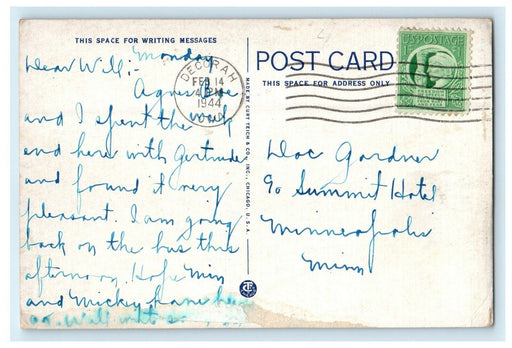 THIS SPACE FOR WRITING MESSAGES
Monday
Dear Will:-
Agnes
and I spent the week
end here with Gertrude
and found it very
pleasant. I am going
back on the bus this
afternoon. Hope Min
and Mickey have
Will write
DECORAH
FEB 14
4 PM
1944
IOWA
MADE BY CURT TEICH & CO., INC., CHICAGO, U.S.A.
POST CARD
THIS SPACE FOR ADDRESS ONLY
U.S. POSTAGE
Doc Gardner
% Summit Hotel
Minneapolis
Minn